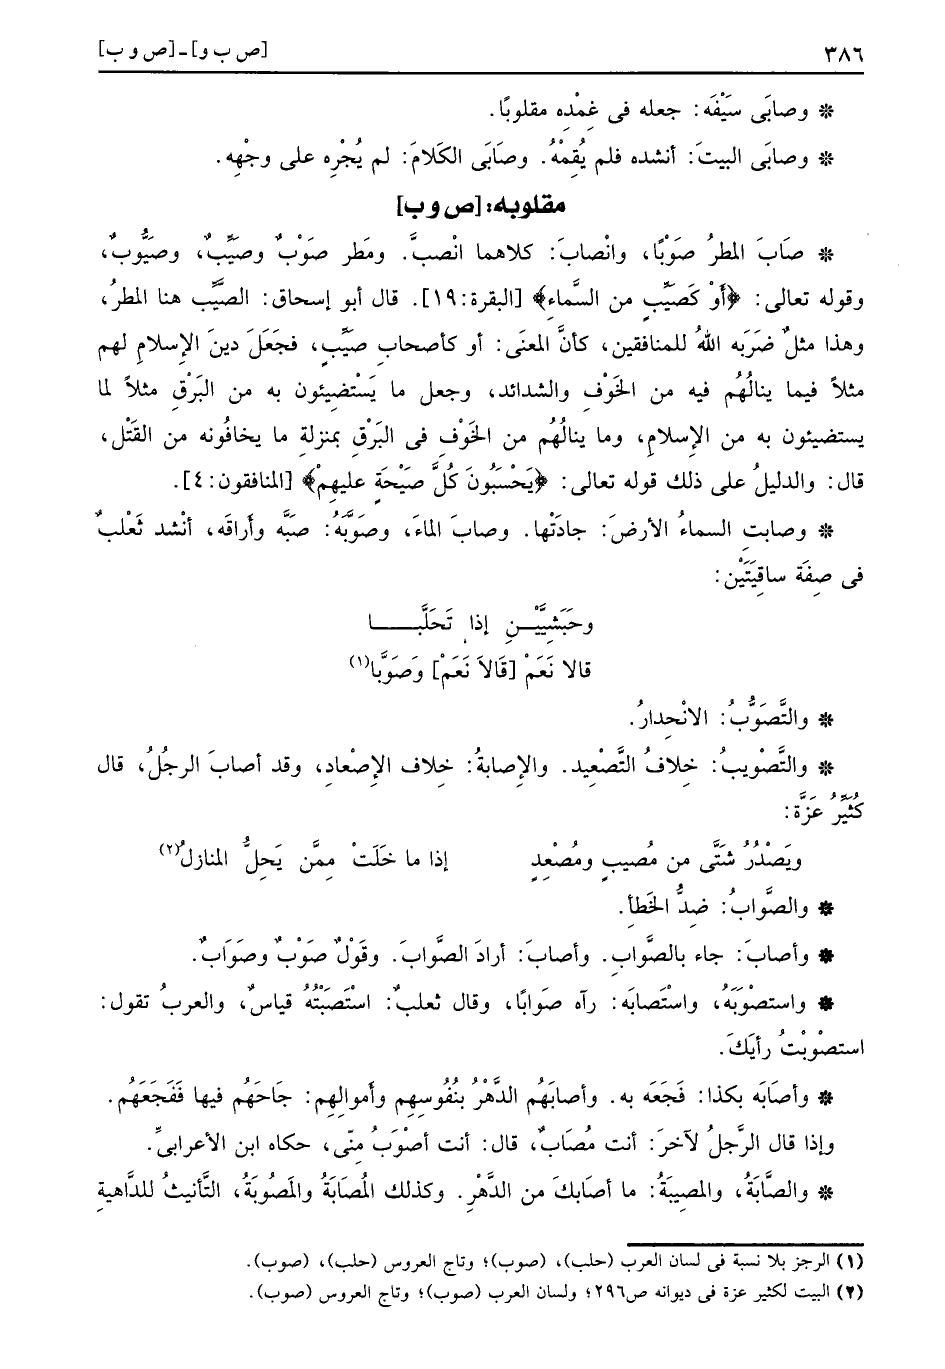 ٣٨٦ [ص ب و] ـ [ص و ب]
* وصابَى سيَْفَه: جعله فى غمْدِه مقلوبًا.
* وصابَى البيتَ: أنشده فلم يُقِمْهُ. وصَابَى الكَلامَ: لم يُجْرِه على وجْهِه.
مقلوبه: [ص و ب]
* صَابَ المطرُ صَوْبًا، وانْصابَ: كلاهما انْصبَّ. ومَطر صَوْبٌ وصَيِّبٌ، وصَيُّوبٌ،
وقوله تعالى: ﴿أَوْ كَصَيِّبٍ من السَّماءِ﴾ [البقرة: ١٩]. قال أبو إسحاق: الصيِّب هنا المطرُ،
وهذا مثلٌ ضَرَبَه اللهُ للمنافقين، كأنَّ المعنَى: أو كأصحابِ صيِّبٍ، فجَعَلَ دينَ الإسلامِ لهم
مثلاً فيما ينالُهُم فيه من الخَوْفِ والشدائد، وجعل ما يَسْتضيئون به من البَرْقِ مثلاً لما
يستضيئون به من الإسلامِ، وما ينالُهُم من الخَوْفِ فى البَرْقِ بمنزلةِ ما يخافُونه من القَتْل،
قال: والدليلُ على ذلك قوله تعالى: ﴿يَحْسَبُونَ كُلَّ صَيْحَةٍ عليهمْ﴾ [المنافقون: ٤].
* وصابت السماءُ الأرضَ: جادَتْها. وصابَ الماءَ، وصَوَّبَهُ: صبَّه وأراقَه، أنْشد ثَعْلبٌ
فى صِفَة ساقِيَتَيْن:
وحَبَشِيَّيْــنِ إذا تَحَلَّبـــــا
قالا نَعَمْ [قَالاَ نَعَمْ] وَصَوَّبا(١)
* والتَّصَوُّبُ: الانْحِدارُ.
* والتَّصْويبُ: خلافُ التَّصْعيد. والإصابةُ: خلاف الإصْعادِ، وقد أصابَ الرجُلُ، قال
كُثَيِّرُ عَزَّةَ:
ويَصْدُرُ شتَّى من مُصيبٍ ومُصْعِدٍ إذا ما خَلَتْ مِمَّن يَحِلُّ المنازلُ(٢)
* والصَّوابُ: ضدُّ الخَطأ.
* وأصابَ: جاء بالصَّواب. وأصابَ: أرادَ الصَّوابَ. وقَوْلٌ صَوْبٌ وصَوَابٌ.
* واستصْوَبَهُ، واسْتَصابَه: رآه صَوابًا، وقال ثعلبٌ: اسْتَصَبْتُهُ قياسٌ، والعربُ تقول:
استصْوبْتُ رأيَكَ.
* وأصَابَه بكذا: فَجَعَه به. وأصابَهُم الدَّهْرُ بنُفُوسِهِم وأموالِهِم: جَاحَهُم فيها فَفَجَعَهُم.
وإذا قال الرَّجلُ لآخرَ: أنت مُصَابٌ، قال: أنت أصْوَبُ مِنِّى، حكاه ابن الأعرابىِّ.
* والصَّابَةُ، والمصيبَةُ: ما أصابكَ من الدَّهْرِ. وكذلك المُصَابَةُ والمَصُوبَةُ، التَّأنيثُ للدَّاهيةِ
(١) الرجز بلا نسبة فى لسان العرب (حلب)، (صوب)؛ وتاج العروس (حلب)، (صوب).
(٢) البيت لكثير عزة فى ديوانه ص٢٩٦؛ ولسان العرب (صوب)؛ وتاج العروس (صوب).